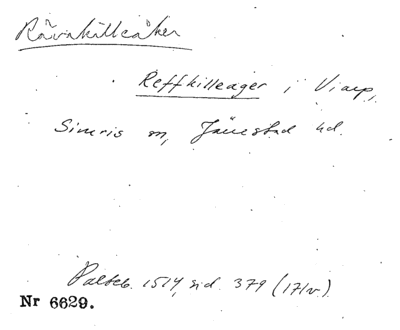 Rävakilleåker
Reffkilleager i Viarp,
Simris m, Järrestad hd.
Palteb. 1514, sid. 379 (17/v).
Nr 6629.